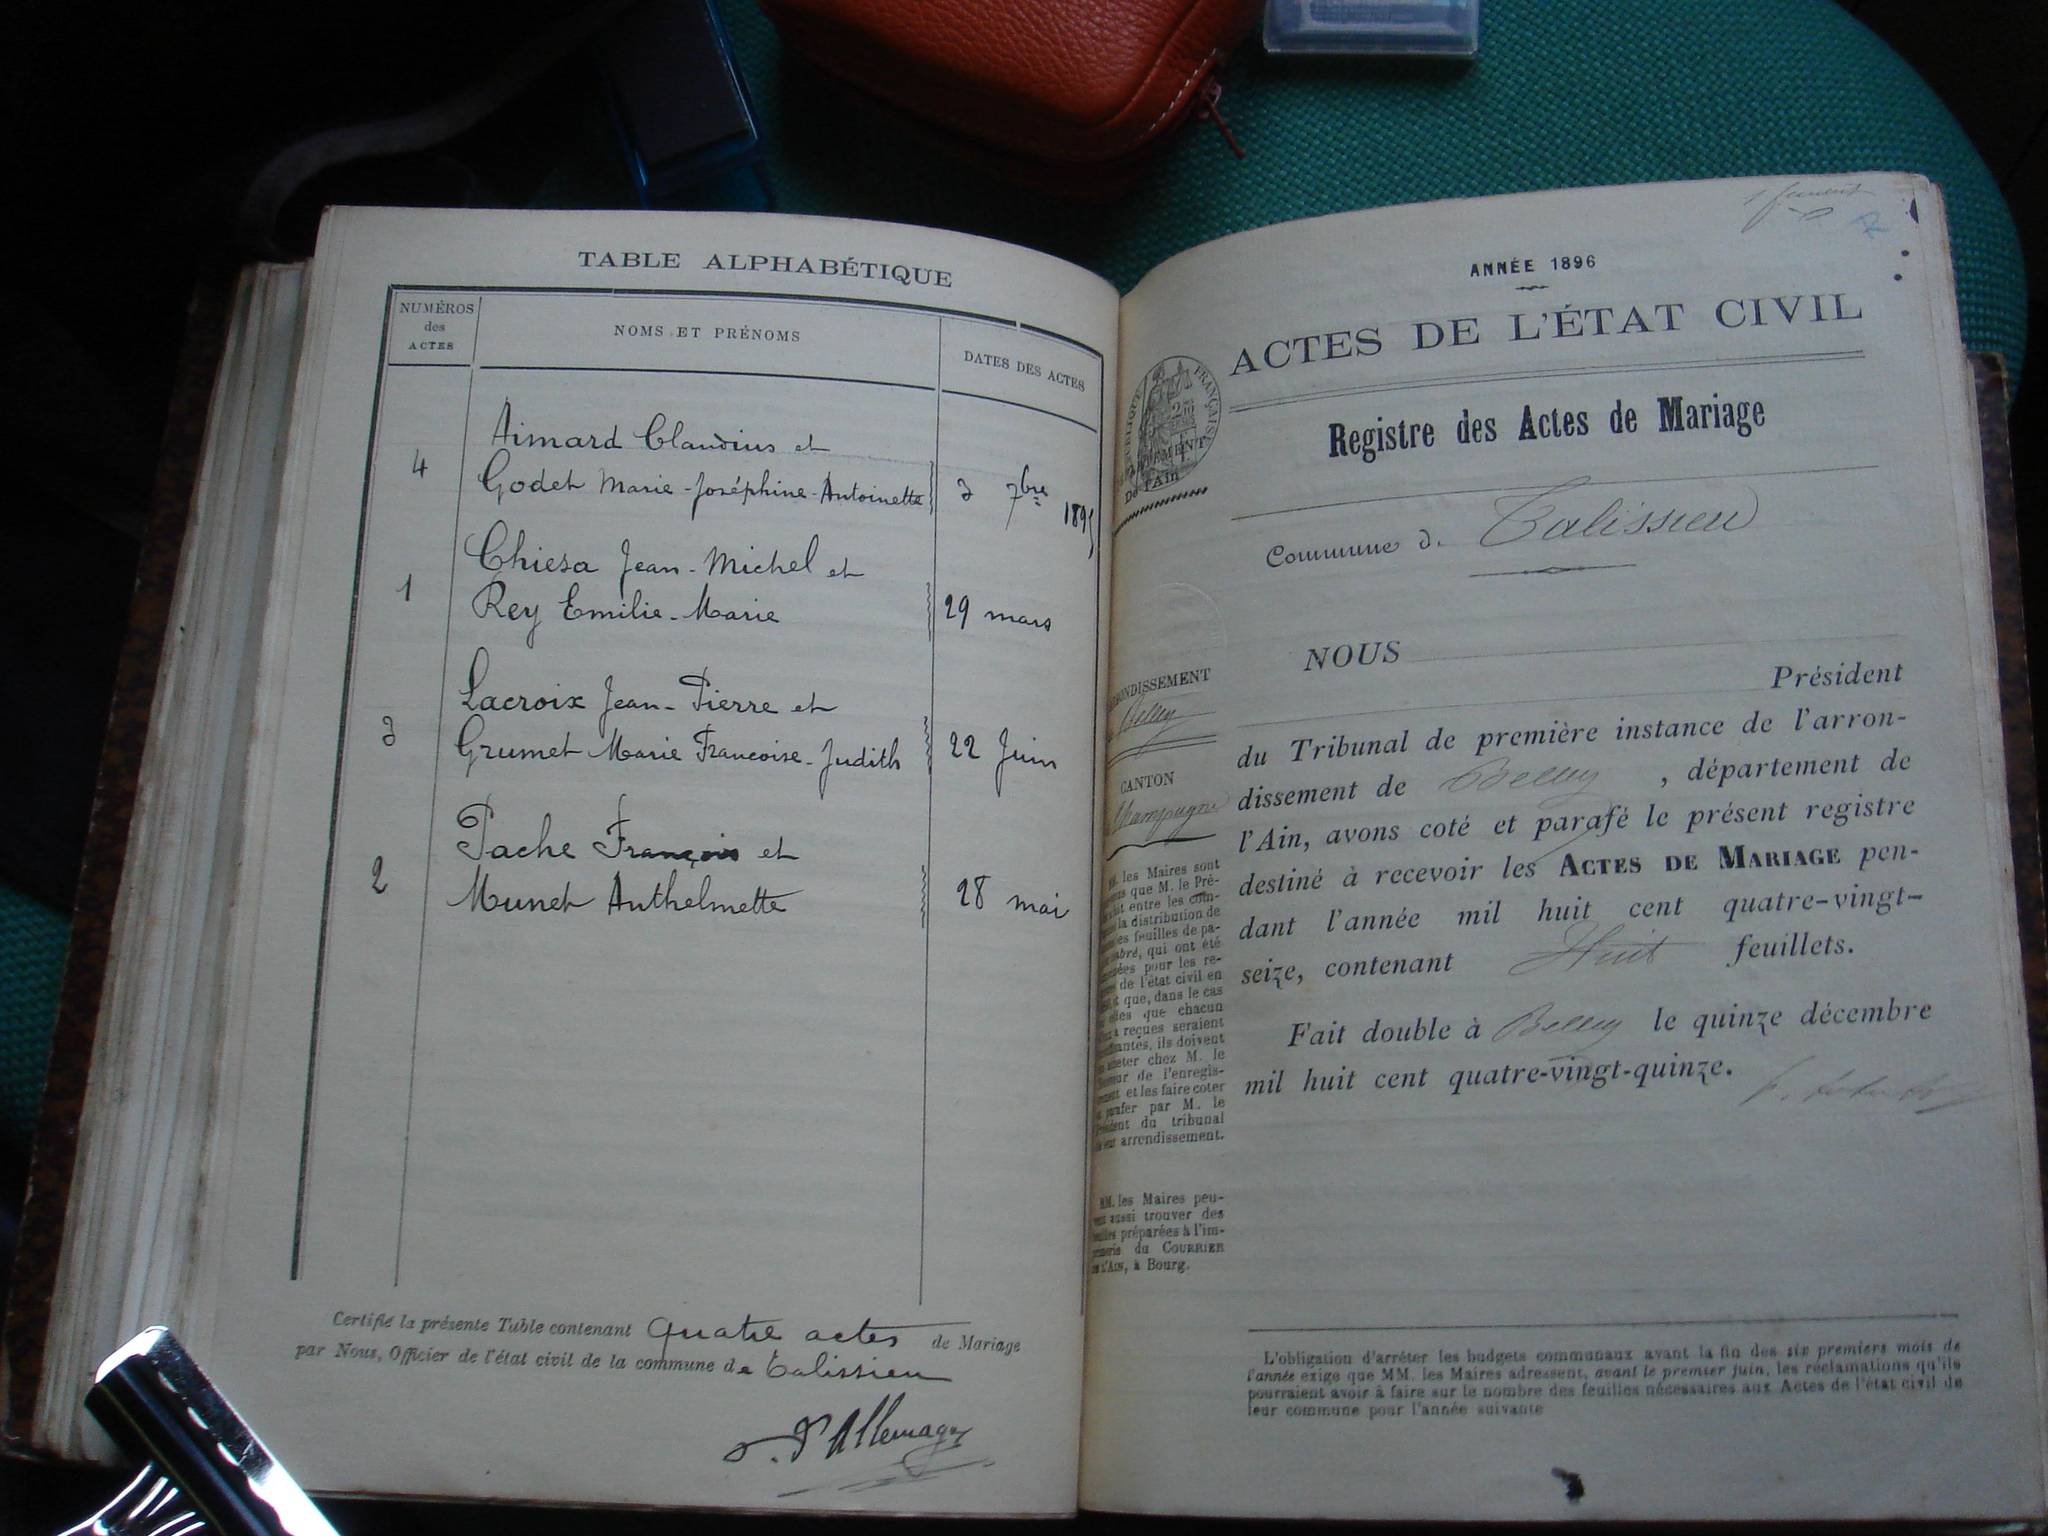 TABLE ALPHABÉTIQUE
NUMÉROS des ACTES
NOMS ET PRÉNOMS
DATES DES ACTES
Aimard Claudius et
4 Godet Marie-Joséphine-Antoinette 3 7bre 1895
Chiesa Jean-Michel et
1 Rey Emilie-Marie 29 mars
Lacroix Jean-Pierre et
3 Grumet Marie Francoise-Judith 22 Juin
Pache François et
2 Munet Anthelmette 28 mai
Certifié la présente Table contenant quatre actes de Mariage
par Nous, Officier de l'état civil de la commune de Talissieu
d'Allemagne
ANNÉE 1896
ACTES DE L'ÉTAT CIVIL
RÉPUBLIQUE FRANÇAISE
De l'Ain
Registre des Actes de Mariage
Commune de Talissieu
NOUS
Président
du Tribunal de première instance de l'arron-
dissement de Belley, département de
l'Ain, avons coté et parafé le présent registre
destiné à recevoir les ACTES DE MARIAGE pen-
dant l'année mil huit cent quatre-vingt-
seize, contenant Huit feuillets.
Fait double à Belley le quinze décembre
mil huit cent quatre-vingt-quinze.
ARRONDISSEMENT
Belley
CANTON
Champagne
les Maires sont
que M. le Pré-
entre les com-
la distribution de
feuilles de pa-
qui ont été
pour les re-
de l'état civil en
que, dans le cas
que chacun
reçues seraient
ils doivent
chez M. le
de l'enregis-
et les faire coter
parafer par M. le
Président du tribunal
arrondissement.
MM. les Maires peu-
aussi trouver des
feuilles préparées à l'im-
primerie du COURRIER
DE L'AIN, à Bourg.
L'obligation d'arrêter les budgets communaux avant la fin des six premiers mois de
l'année exige que MM. les Maires adressent, avant le premier juin, les réclamations qu'ils
pourraient avoir à faire sur le nombre des feuilles nécessaires aux Actes de l'état civil de
leur commune pour l'année suivante